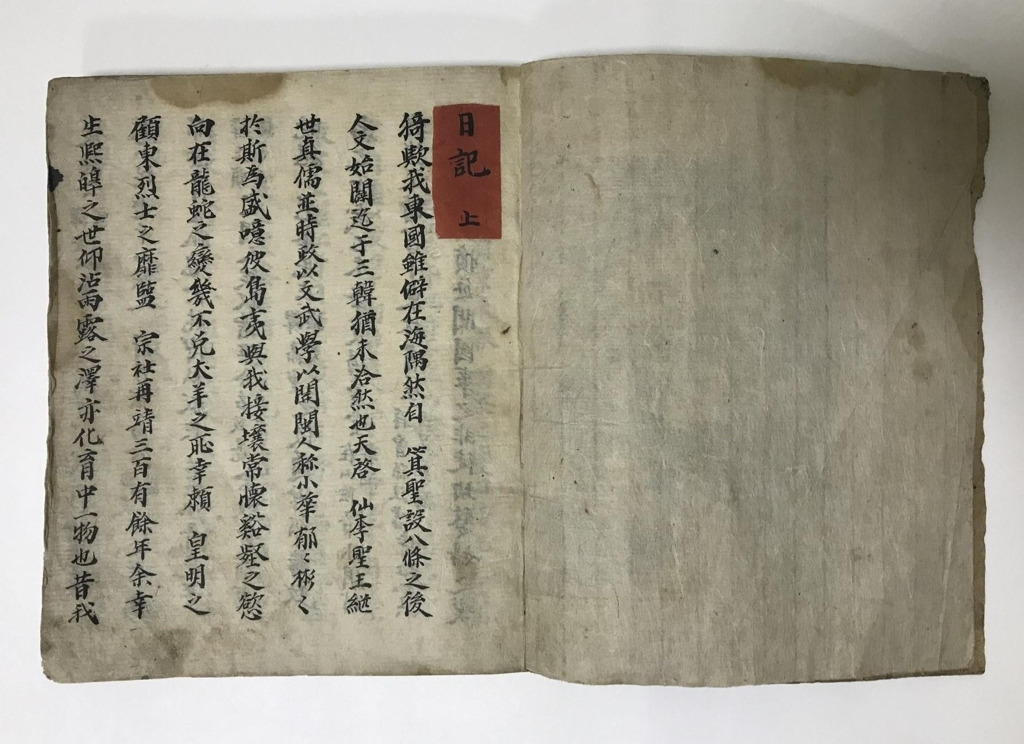 日記 上
猗歟我東國雖僻在海隅然自 箕聖設八條之後
人文始闢迄于三韓猶未洽然也天啓 仙李聖王継
世真儒並時政以文武學以関閩人称小華郁〻彬〻
於斯為盛噫彼島夷與我接壤常懷谿壑之慾
向在龍蛇之變幾不免犬羊之恥幸賴 皇明之
顧東烈士之靡監 宗社再靖三百有餘年余幸
生熙皞之世仰沾雨露之澤亦化育中一物也昔我